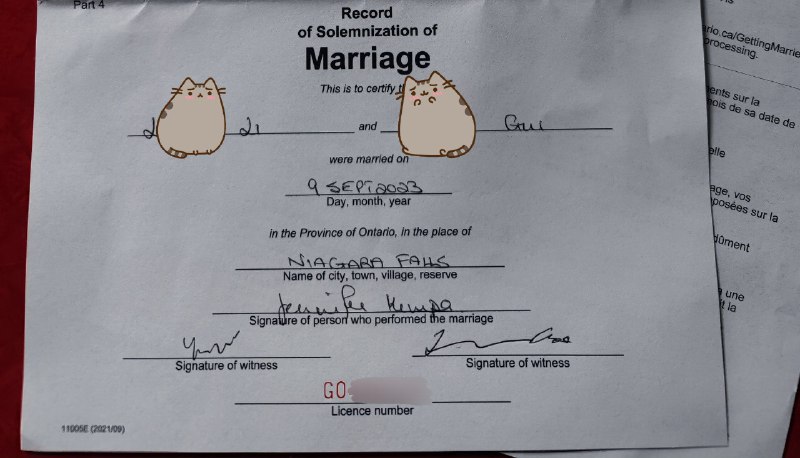 Part 4
Record
of Solemnization of
Marriage
This is to certify
Li and Gui
were married on
9 SEPT 2023
Day, month, year
in the Province of Ontario, in the place of
NIAGARA FALLS
Name of city, town, village, reserve
Jennifer Kempa
Signature of person who performed the marriage
Signature of witness Signature of witness
GO
Licence number
11005E (2021/09)
ario.ca/GettingMarrie
processing.
ents sur la
nois de sa date de
elle
age, vos
posées sur la
dûment
une
t la